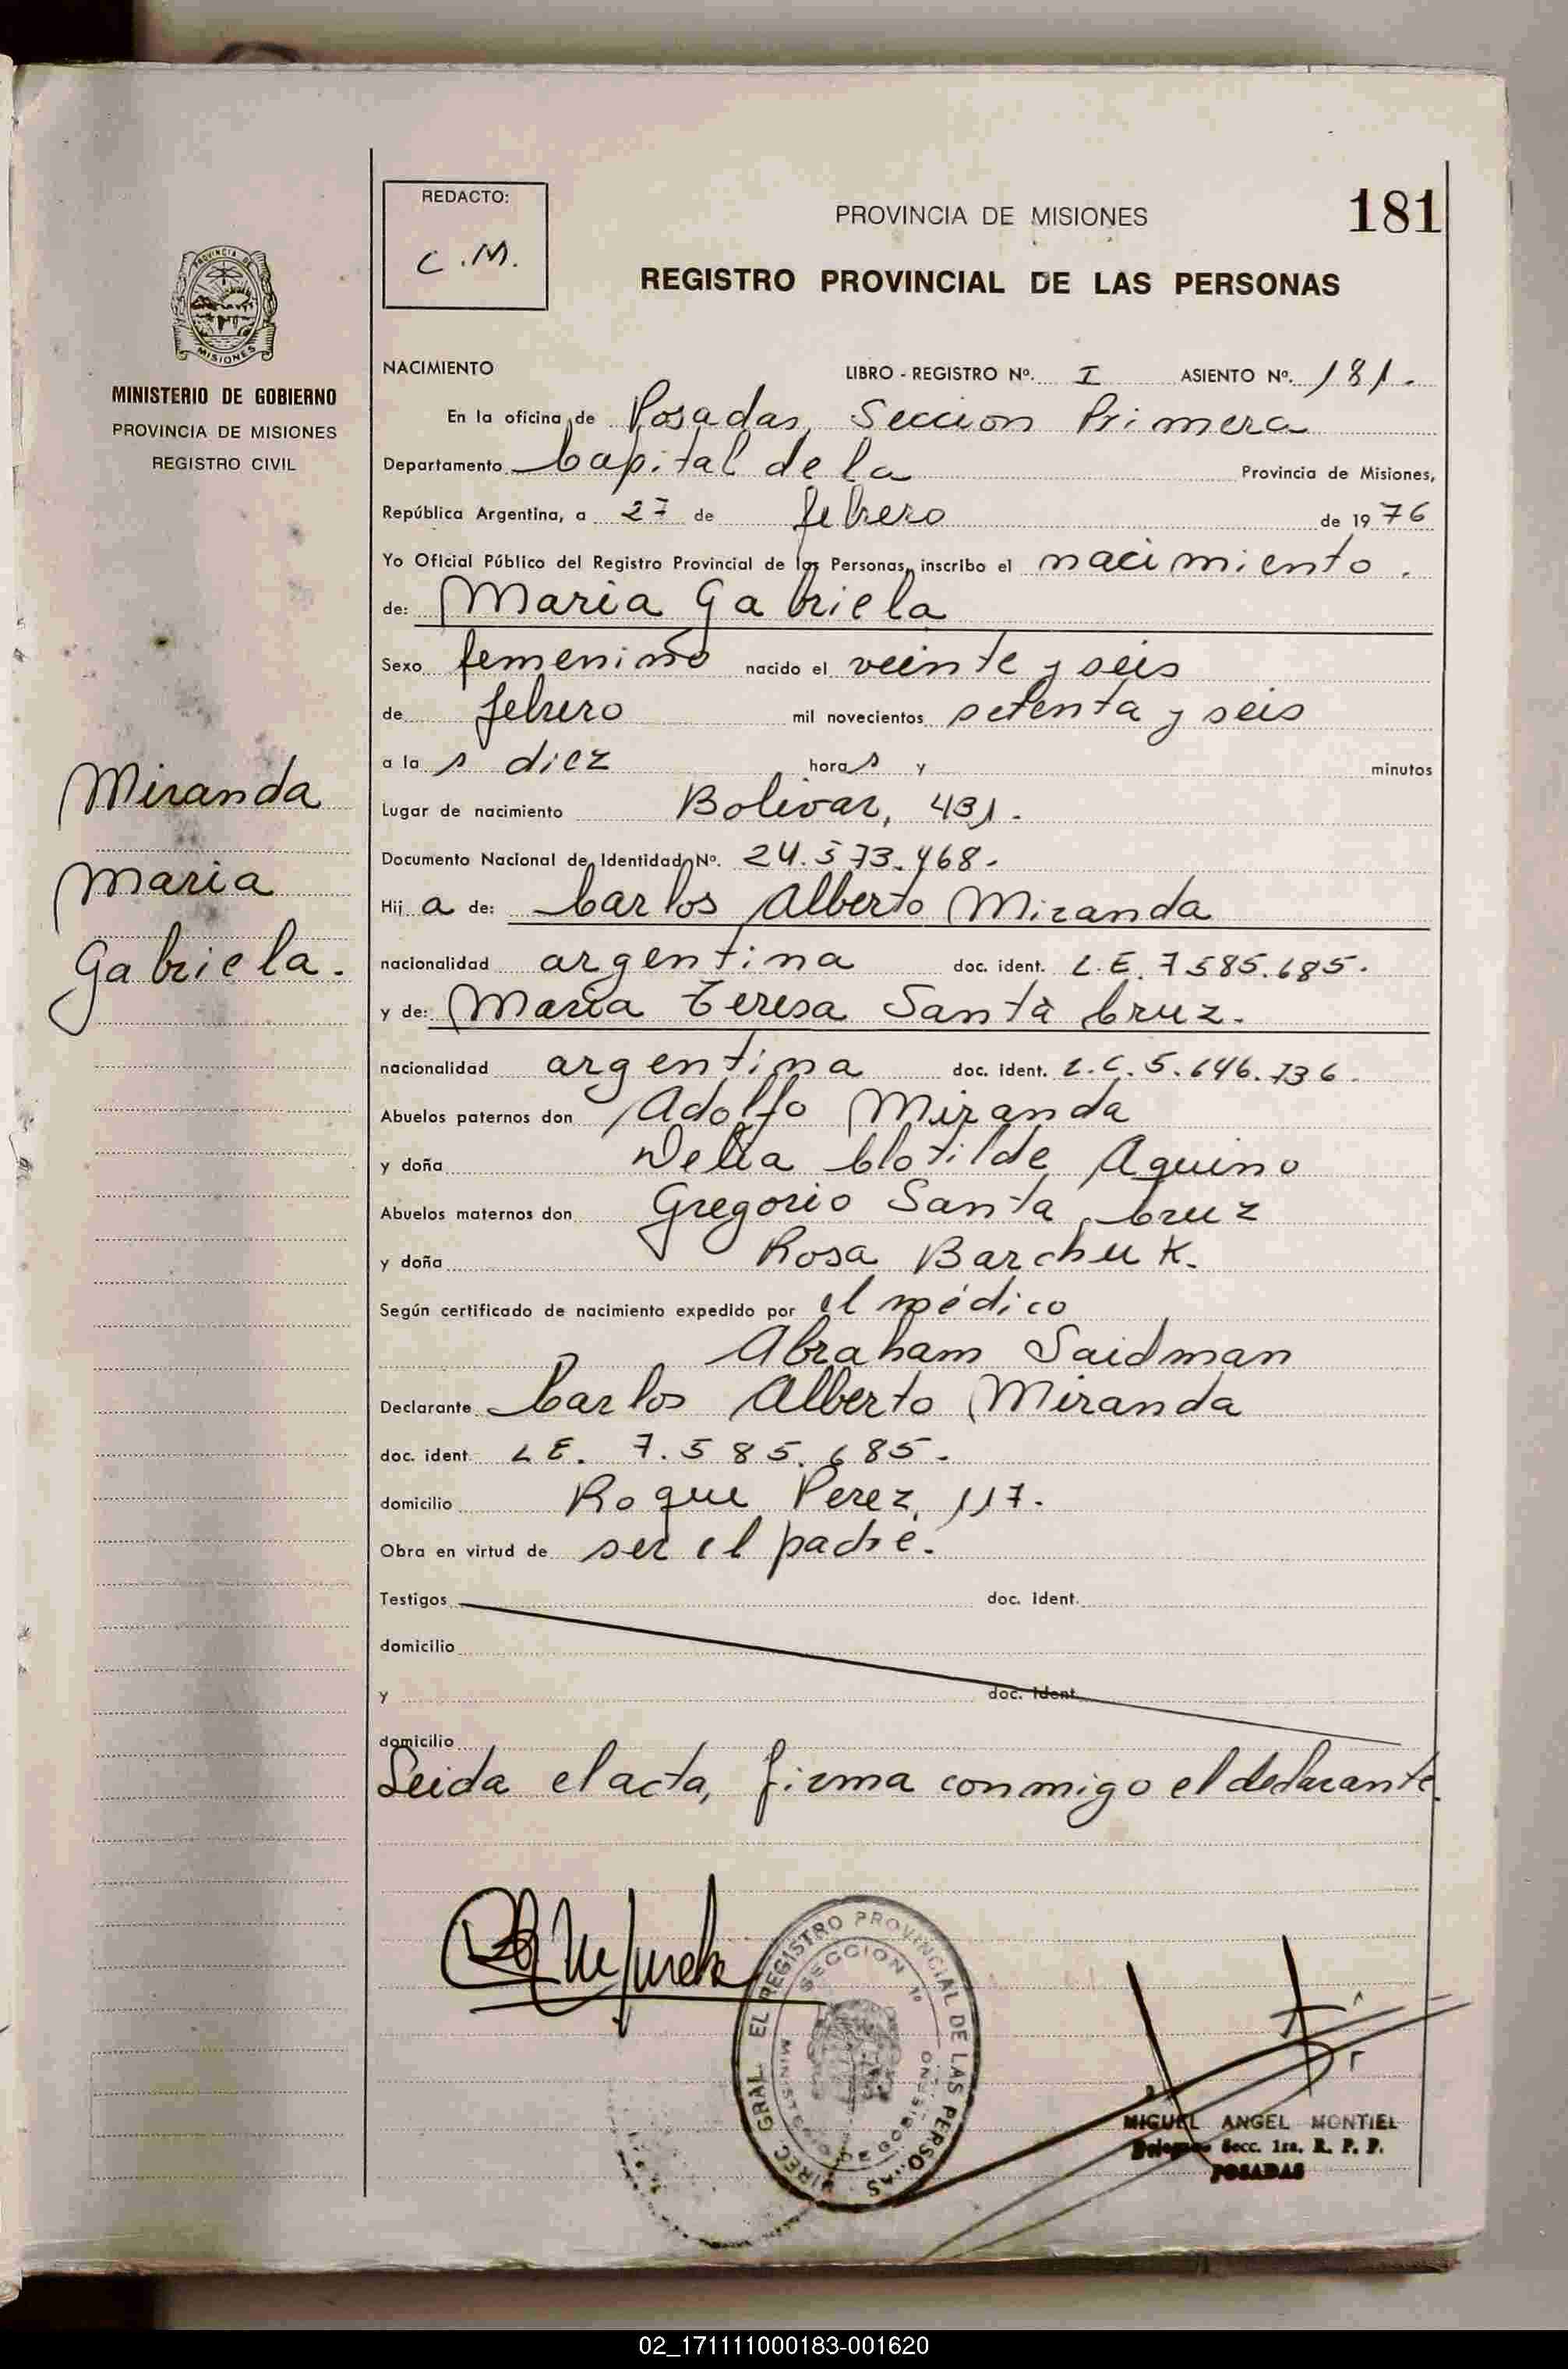 REDACTO:
C.M.
PROVINCIA DE MISIONES
181
REGISTRO PROVINCIAL DE LAS PERSONAS
PROVINCIA DE
MISIONES
MINISTERIO DE GOBIERNO
PROVINCIA DE MISIONES
REGISTRO CIVIL
Miranda
Maria
Gabriela.
NACIMIENTO LIBRO - REGISTRO Nº. I ASIENTO Nº. 181.
En la oficina de Posadas, Seccion Primera
Departamento Capital de la Provincia de Misiones,
República Argentina, a 27 de febrero de 1976
Yo Oficial Público del Registro Provincial de las Personas, inscribo el nacimiento.
de: Maria Gabriela
Sexo femenino nacido el veinte y seis
de febrero mil novecientos setenta y seis
a la s diez hora s y minutos
Lugar de nacimiento Bolivar, 431.
Documento Nacional de Identidad Nº. 24.573.468.
Hij a de: Carlos Alberto Miranda
nacionalidad argentina doc. ident. L.E. 7.585.685.
y de: Maria Teresa Santa Cruz.
nacionalidad argentina doc. ident. L.C. 5.646.736.
Abuelos paternos don Adolfo Miranda
y doña Delia Clotilde Aquino
Abuelos maternos don Gregorio Santa Cruz
y doña Rosa Barchuk.
Según certificado de nacimiento expedido por el médico
Abraham Saidman
Declarante Carlos Alberto Miranda
doc. ident. LE. 7.585.685.
domicilio Roque Perez, 117.
Obra en virtud de ser el padre.
Testigos doc. ident.
domicilio
y doc. ident.
domicilio
Leida el acta, firma conmigo el declarante.
DIREC. GRAL. EL REGISTRO PROVINCIAL DE LAS PERSONAS
SECCION 1º
MINISTERIO DE GOBIERNO
MIGUEL ANGEL MONTIEL
Delegado Secc. 1ra. R. P. P.
POSADAS
02_171111000183-001620